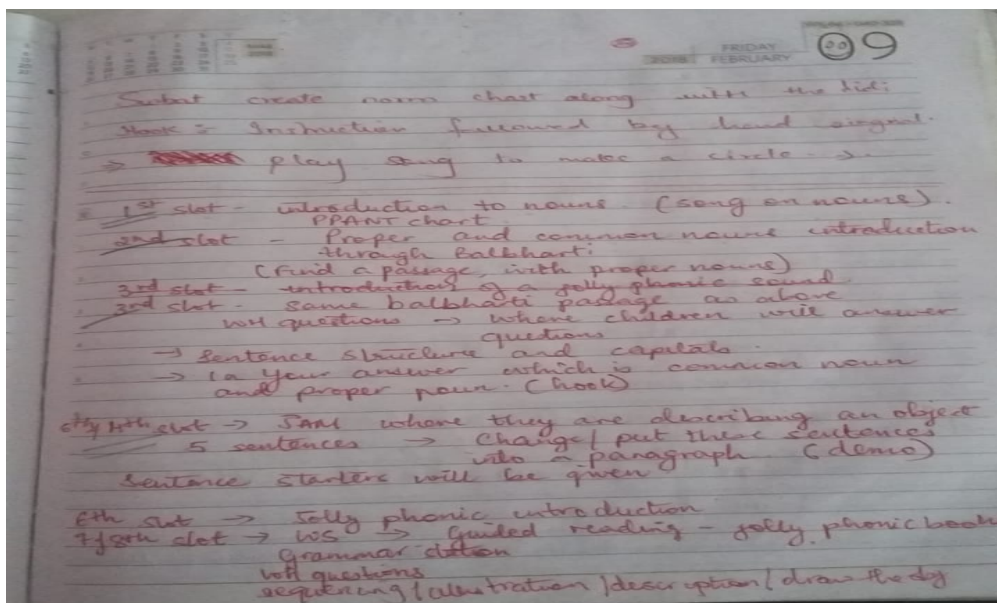 2018 FRIDAY
FEBRUARY 09
create norm chart along with the kids
Hook :- Instruction followed by hand signal.
→ play song to make a circle →
1st slot - introduction to nouns (song on nouns).
PPANT chart
2nd slot - Proper and common nouns introduction
through Balbharti
(Find a passage, with proper nouns)
3rd slot - introduction of a jolly phonic sound
3rd slot - same balbharti passage as above
WH questions → where children will answer
quetions
→ sentence structure and capitals.
→ In your answer which is common noun
and proper noun. (hook)
4th slot → where they are describing an object
5 sentences → change / put these sentences
into a paragraph (demo)
Sentence starters will be given
6th slot → Jolly phonic introduction
7/8th slot → WS → Guided reading - jolly phonic book
Grammar
WH questions
sequencing / illustration / description / draw the